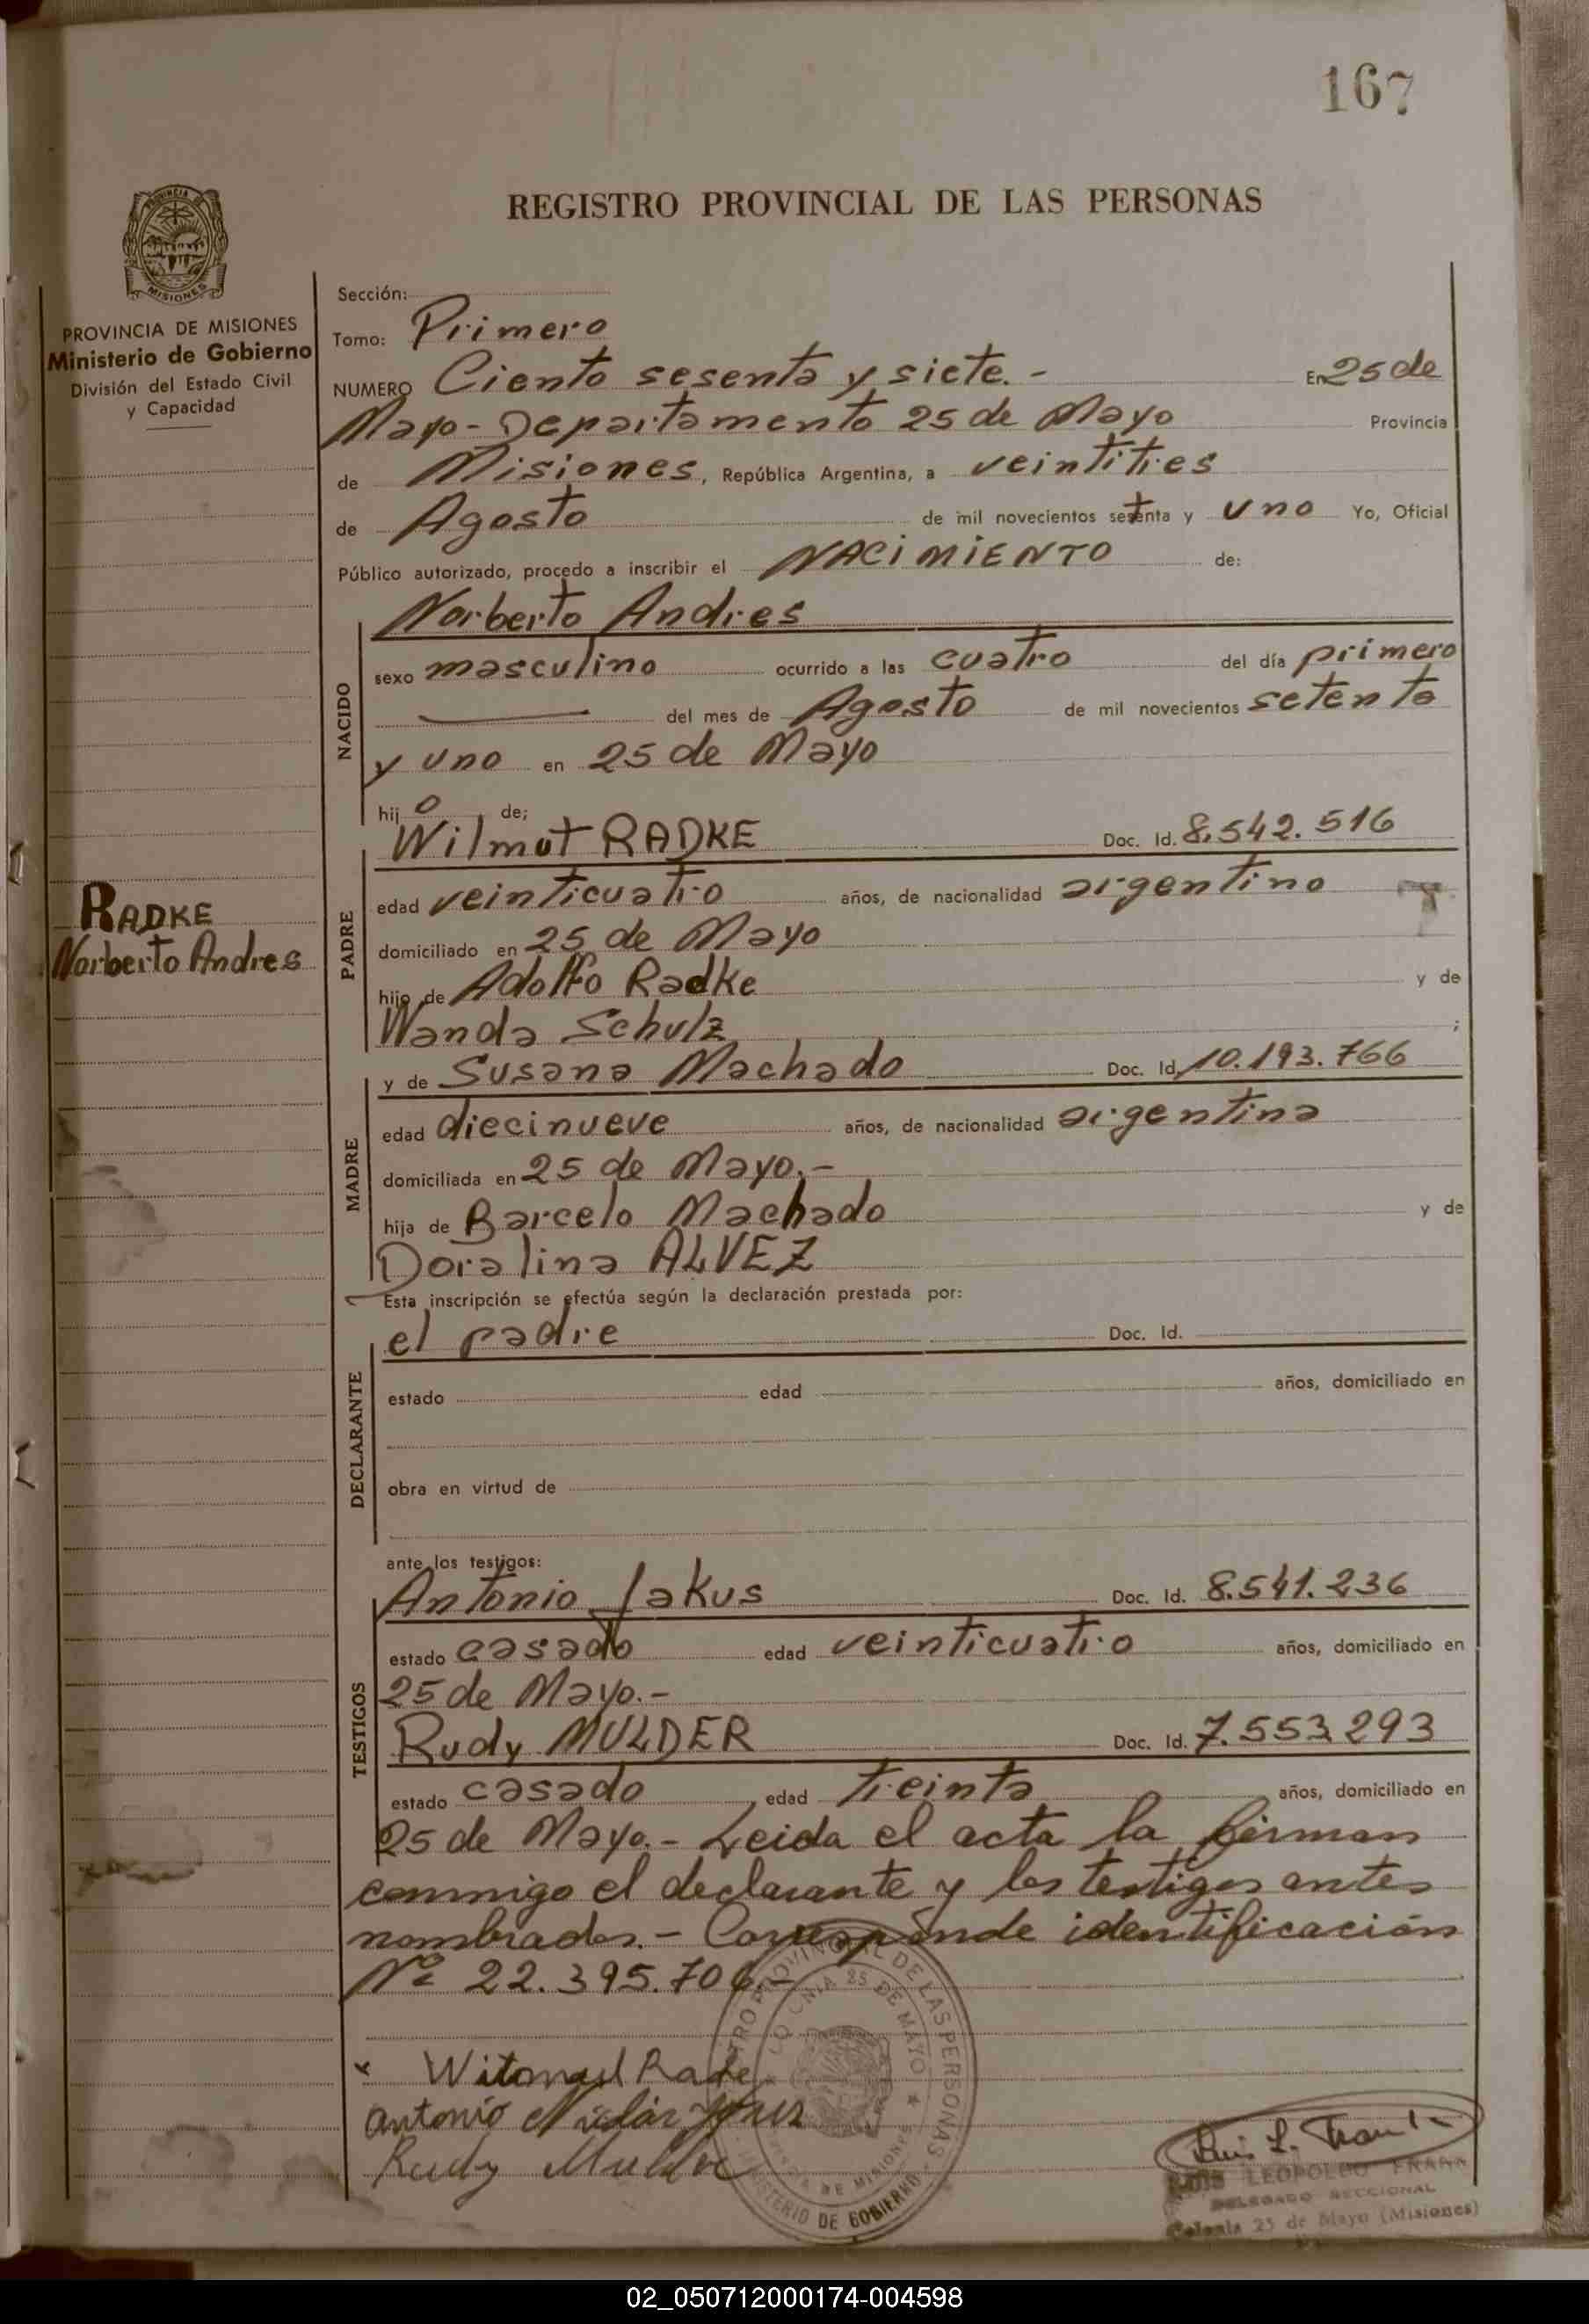 167
REGISTRO PROVINCIAL DE LAS PERSONAS
PROVINCIA
MISIONES
PROVINCIA DE MISIONES
Ministerio de Gobierno
División del Estado Civil
y Capacidad
RADKE
Norberto Andres
Sección:
Tomo: Primero
NUMERO Ciento sesenta y siete.- En 25 de
Mayo - Departamento 25 de Mayo Provincia
de Misiones, República Argentina, a veintitres
de Agosto de mil novecientos setenta y uno Yo, Oficial
Público autorizado, procedo a inscribir el NACIMIENTO de:
NACIDO
Norberto Andres
sexo masculino ocurrido a las cuatro del día primero
del mes de Agosto de mil novecientos setenta
y uno en 25 de Mayo
hijo de;
PADRE
Wilmut RADKE Doc. Id. 8.542.516
edad veinticuatro años, de nacionalidad argentino
domiciliado en 25 de Mayo
hijo de Adolfo Radke y de
Wanda Schulz ;
MADRE
y de Susana Machado Doc. Id. 10.193.766
edad diecinueve años, de nacionalidad argentina
domiciliada en 25 de Mayo.-
hija de Barcelo Machado y de
Doralina ALVEZ
Esta inscripción se efectúa según la declaración prestada por:
DECLARANTE
el padre Doc. Id.
estado edad años, domiciliado en
obra en virtud de
ante los testigos:
TESTIGOS
Antonio Jakus Doc. Id. 8.541.236
estado casado edad veinticuatro años, domiciliado en
25 de Mayo.-
Rudy MULDER Doc. Id. 7.553.293
estado casado edad treinta años, domiciliado en
25 de Mayo.- Leida el acta la firman
conmigo el declarante y los testigos antes
nombrados.- Corresponde identificación
Nº 22.395.706.-
REGISTRO PROVINCIAL DE LAS PERSONAS
COLONIA 25 DE MAYO
MINISTERIO DE GOBIERNO
Antonio
Rudy Mulder
Luis L. Frank
LUIS LEOPOLDO FRANK
DELEGADO SECCIONAL
Colonia 25 de Mayo (Misiones)
02_050712000174-004598